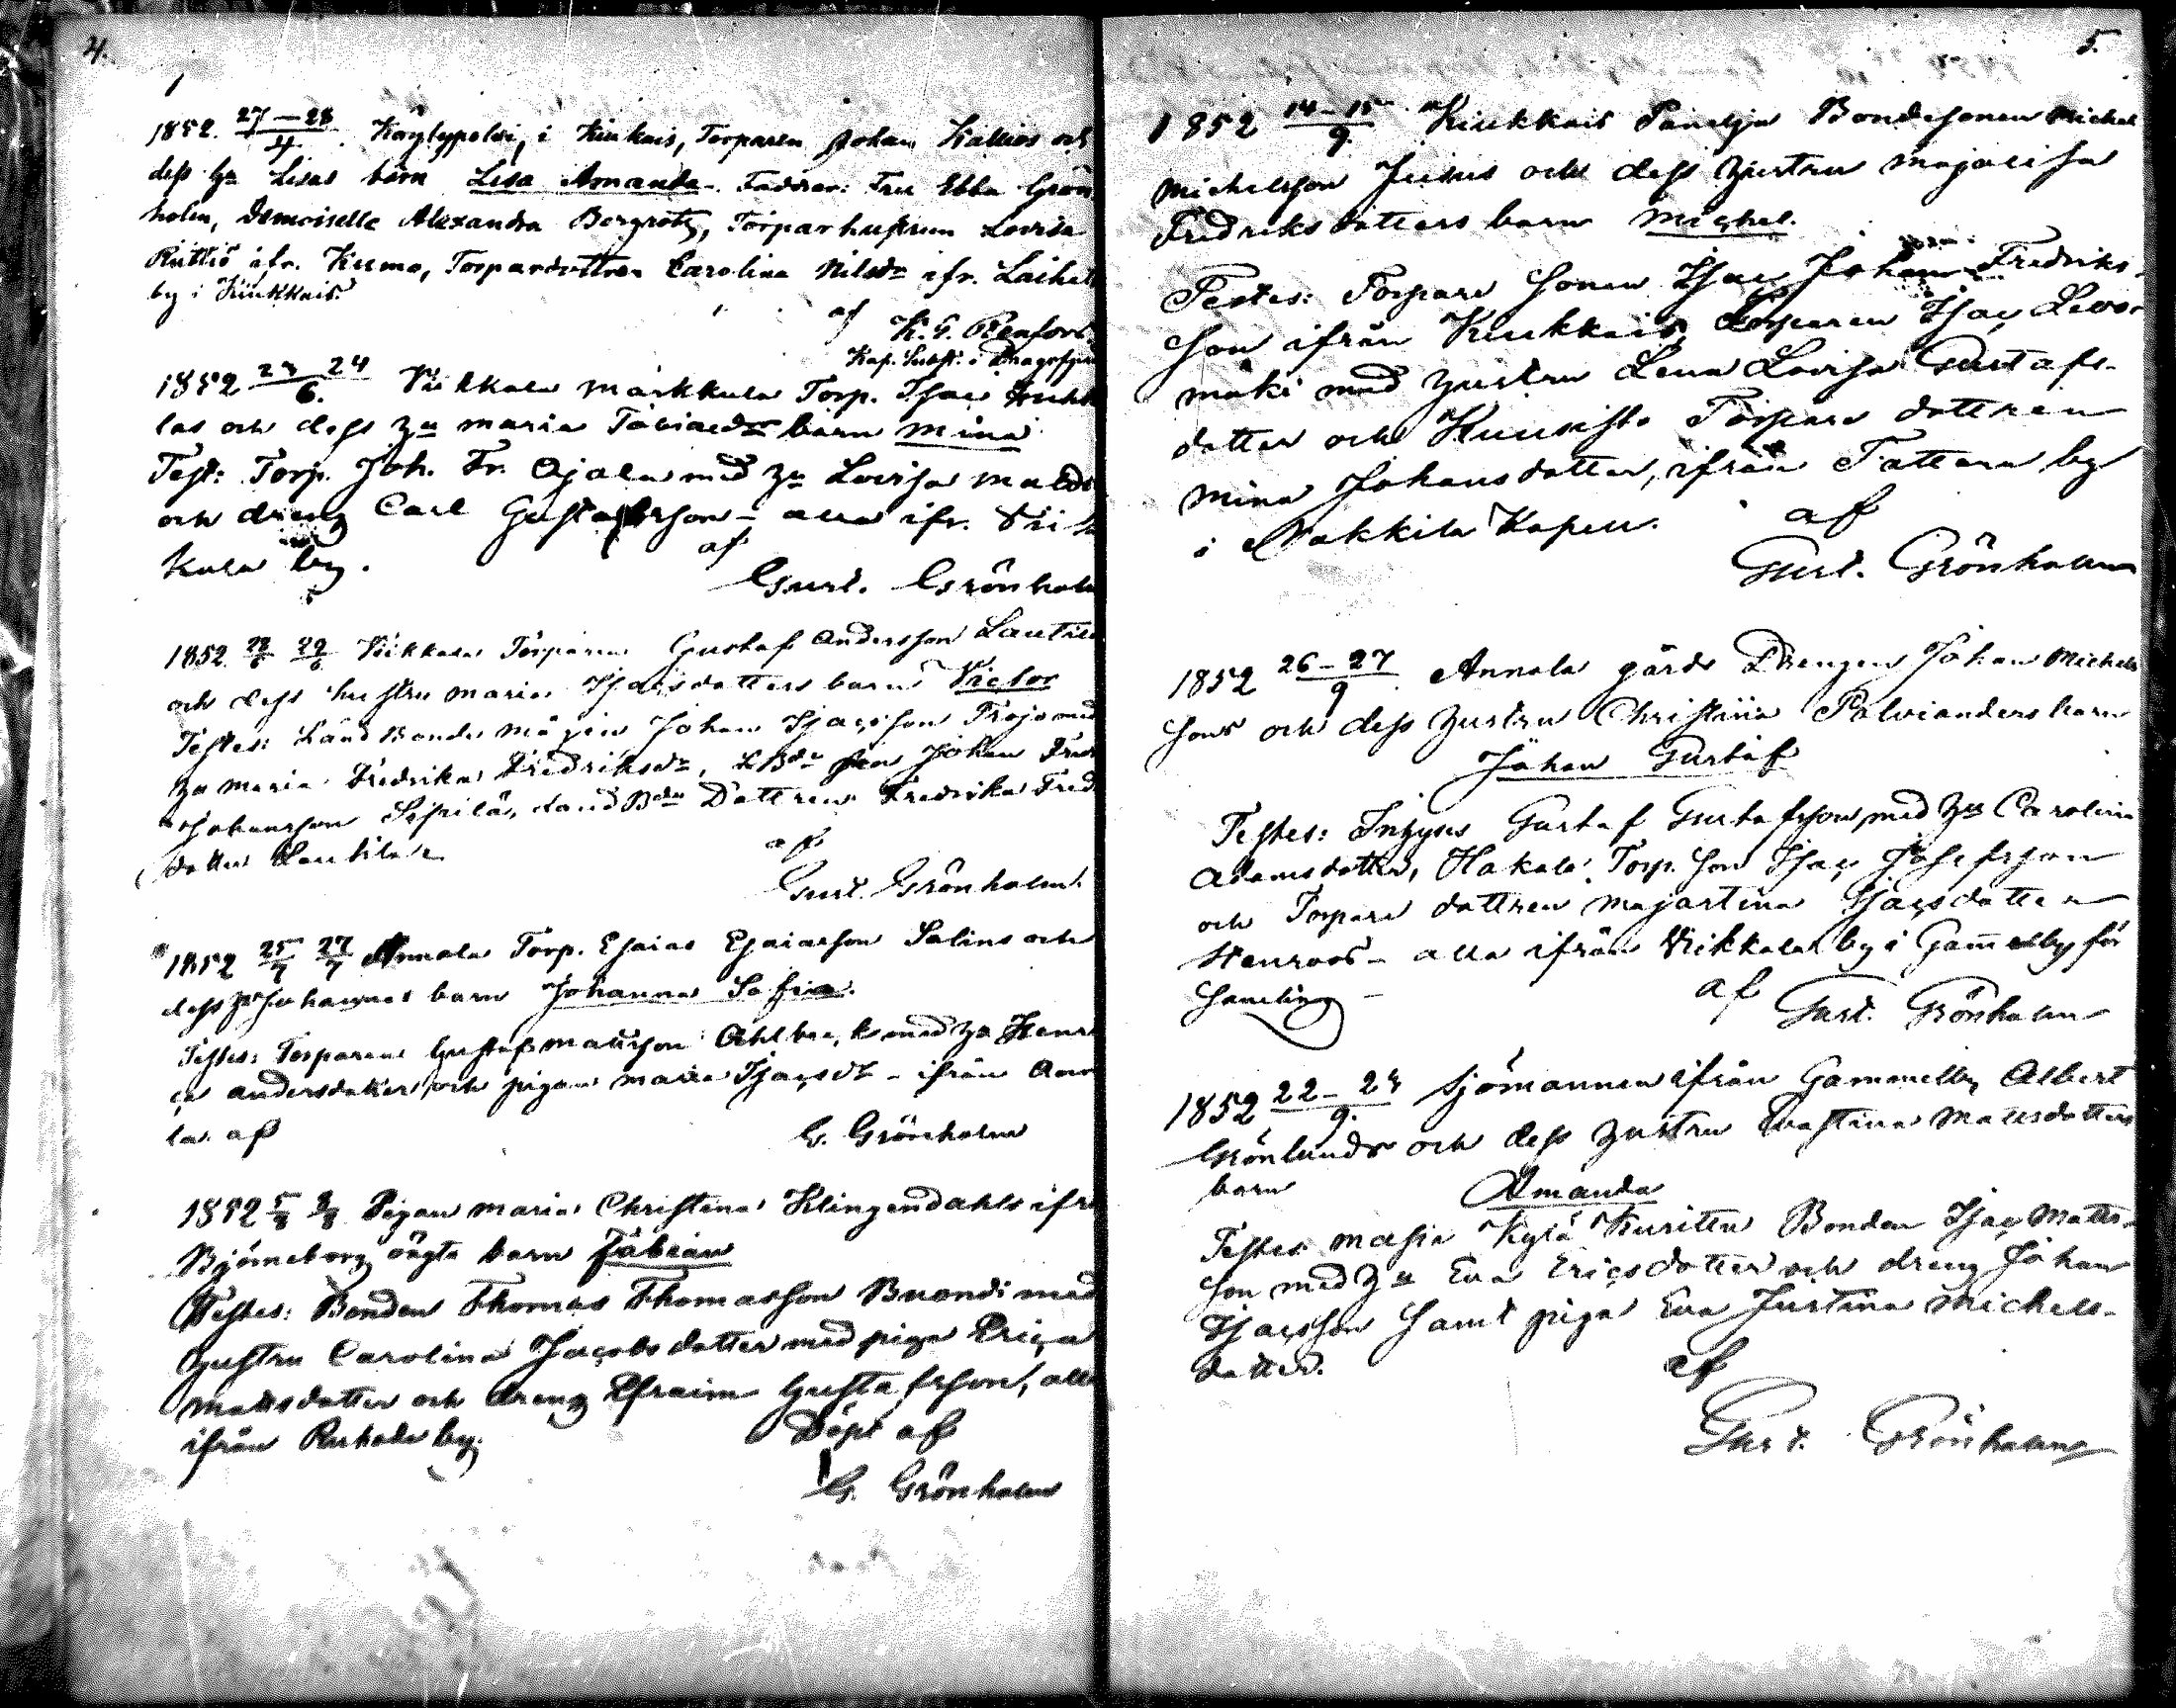 4.
1852. 27–28/4. i Kiukais, Torparen Johan Kallios och
dess hu Lisas barn Lisa Amanda. Faddrar: Fru Ebba Grön
holm, Demoiselle Alexandra Bergroth, Torparhustrun Lovisa
ifr. Kumo, Torpardottren Carolina Nilsdr ifr. Laihela
by i Kiukkais.
af K. G. Renfors
Kap. Subst. i
1852 23 24/6. Viikkala Markkula Torp. Isac
las och dess hu Maria Tobiaedr barn Mina
Test: Torp. Joh. Fr. Ajala med hu Lovisa Matsdr
och dreng Carl Gustafsson – alla ifr. Vik
kala by.
af
Gust. Grönholm
1852. 28/6 29/6 Viikkala Torparen Gustaf Andersson Lautila
och dess hustru Maria Isacsdotters barn Victor
Testes: Land Bonde mågen Johan Isacsson Trojo med
hu Maria Fredrika Fredriksdr, L Bde son Johan Fred
Johansson Sipilä, Land Bde Dottren Fredrika Fred
dotter Lautila
af
Gust. Grönholm.
1852 25/7 27/7 Annala Torp. Esaias Esaiasson Salins och
dess hu Johannas barn Johanna Sofia.
Testes: Torparen Gustaf Mattsson Ahlbeck med hu Henri
ca Andersdotter, och pigan Maria Isacsdr – ifrån Ann
la. af
G. Grönholm
1852 5/8 8/8 Pigan Maria Christina Klingendahls ifrå
Björneborg oägta barn Fabian
Testes: Bonden Thomas Thomasson Buondi med
hustru Carolina Jacobsdotter med piga Erica
Mattsdotter och dreng Efraim Gustafsson, alla
ifrån Ruhade by.
Döpt af
G. Grönholm
5.
1852 14–15/9. Kiukkais Panelja Bondesonen Michel
Michelsson Juises och dess hustru Majalisa
Fredriksdotters barn Michel.
Testes: Torpare Sonen Isac Johan Fredriks-
son ifrån Kiukkais, Torparen Isac Levo-
mäki med hustru Lena Lovisa Gustafs-
dotter och Kuusisto Torpare dottren
Mina Johansdotter, ifrån Tattara by
i Nakkila Kapell.
af
Gust. Grönholm
1852 26–27/9. Annala gårds Drengen Johan Michels
sons och dess hustru Christina Palvianders barn
Johan Gustaf
Testes: Inhyses Gustaf Gustafsson med hu Carolina
Adamsdotter, Hakala Torp. Son Isac Josefsson
och Torpare dottren Majastina Isacsdotter
Stenroos – alla ifrån Viikkala by i Gamelby för
samling –
af
Gust. Grönholm
1852 22–23/9. Sjömannen ifrån Gammelby Albert
Grönlunds och dess hustru Evastina Matsdotters
barn
Amanda
Testes: Masia Kylä Kuritta Bonden Isac Matts-
son med hu Eva Ericsdotter och dreng Johan
Isacsson samt piga Eva Justina Michels-
dotter.
af
Gust. Grönholm